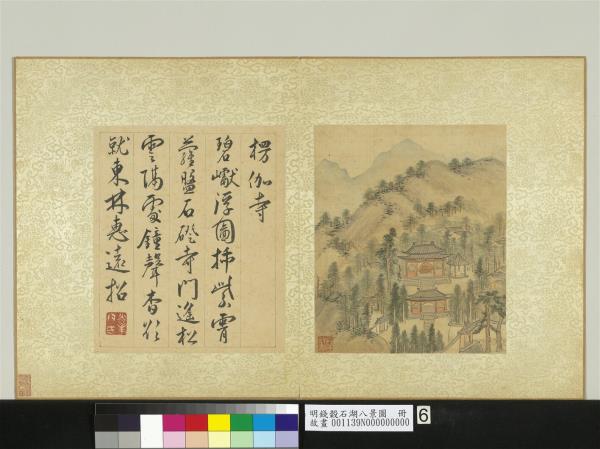 楞伽寺
碧巘浮圖插紫霄
蘿盤石磴寺門遙松
雲隔處鐘聲杳欲
就東林惠遠招
明錢穀石湖八景圖 冊
故畫 001139N000000000
6